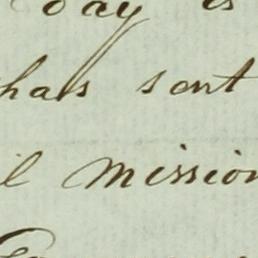 day is
has sent
mission